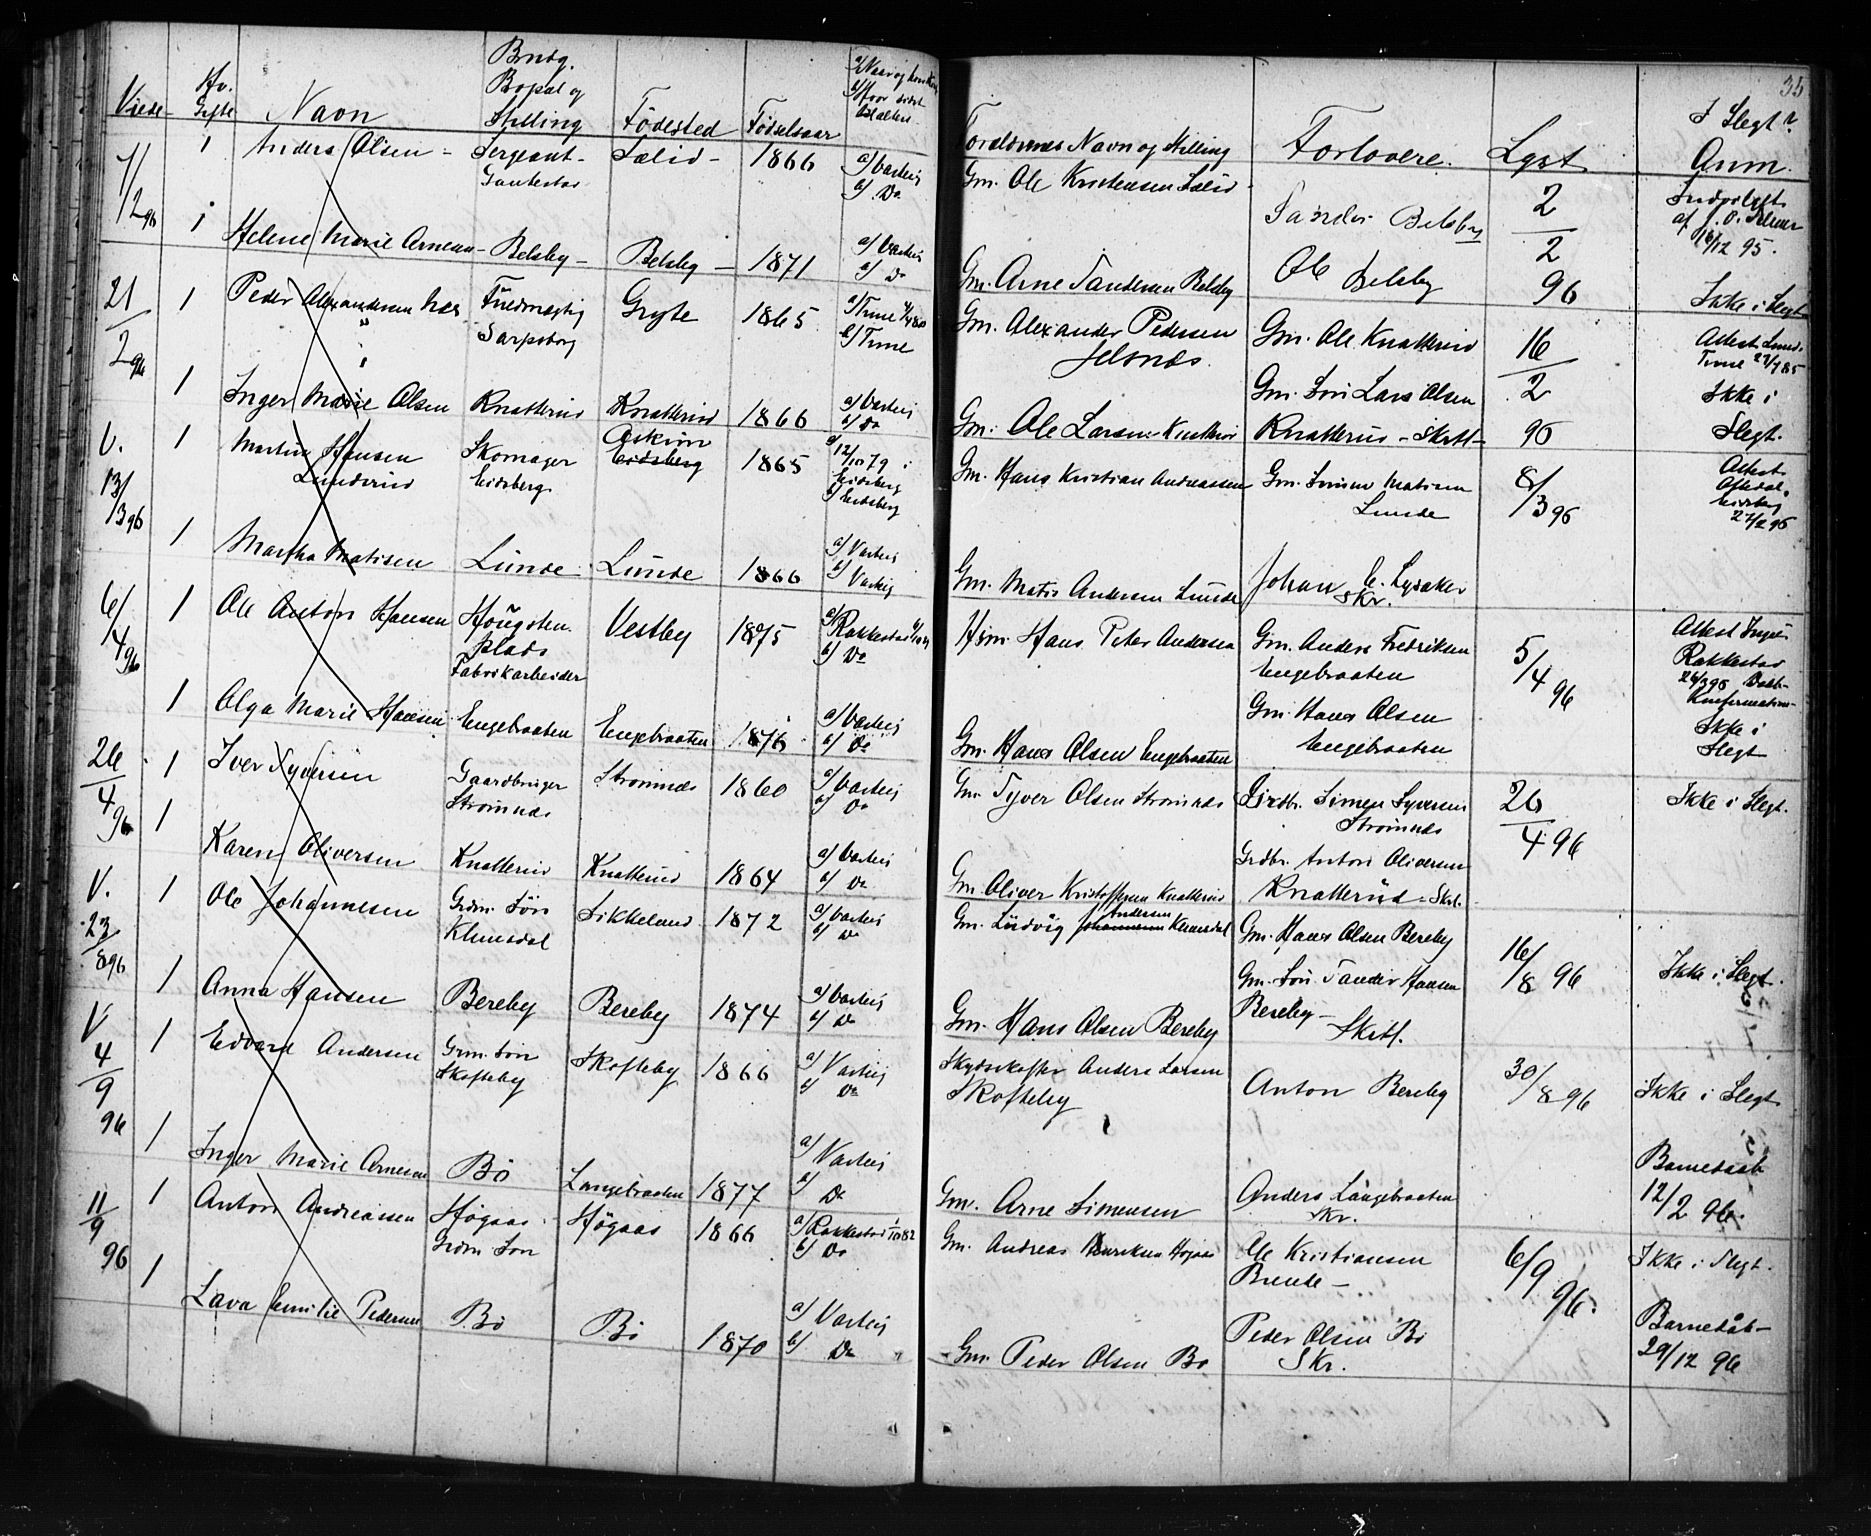 35
Viede
Hv. Gifte
Navn
Brudg. Bopæl og Stilling
Födested
Födselsaar
Forældrenes Navn og Stilling
Forlovere.
Lyst
I Slegt? Anm.
7/2 96
1
Anders Olsen
Sergeant
Sælid
1866
a) Varteig
b) Do
Gm. Ole Kristensen Sælid
Sander Belsby
2/2 96
1
Helene Marie Arnesen
Belsby
Belsby
1871
a) Varteig
b) Do
Gm. Arne Sandersen Belsby
Ole Belsby
Ikke i Slegt
21/2 96
1
Peder Alexandersen
Sarpsborg
Gryte
1865
a) Tune
b) Tune
Gm. Alexander Pedersen
Jelsnæs
Gm. Ole Knatterud
16/2 96
Attest
Tune 27/7 85
1
Inger Marie Olsen
Knatterud
Knatterud
1866
a) Varteig
b) Do
Gm. Ole Larsen Knatterud
Gm. Søn Lars Olsen
Knatterud - Skrtl
Ikke i
Slegt.
V.
13/3 96
1
Martin Hansen
Lunderud
Skomager
Eidsberg
Askim
Eidsberg
1865
a) 12/10 79 i
Eidsberg
b) Eidsberg
Gm. Hans Kristian Andreassen
Gm. Simen Matisen
Lunde
8/3 96
Attest
Eidsberg
27/2 96
1
Martha Matisen
Lunde
Lunde
1866
a) Varteig
b) Varteig
Gm. Matis Andersen Lunde
Johan C. Lysaker
Skr.
6/4 96
1
Ole Anton Hansen
Höugsten
plads
Fabrikarbeider
Vestby
1875
a) Rakkestad
b) Do
Hsm. Hans Peter Andersen
Gm. Anders Fredriksen
Engebraaten
5/4 96
Attest
Rakkestad
Konfirmation
1
Olga Marie Hansen
Engebraaten
Engebraaten
1876
a) Varteig
b) Do
Gm. Hans Olsen Engebraaten
Gm. Hans Olsen
Engebraaten
Ikke i
Slegt
26/4 96
1
Iver Syversen
Gaardbruger
Strömnæs
Strömnæs
1860
a) Varteig
b) Do
Gm. Syver Olsen Strömnæs
Grdbr. Simen Syversen
Strömnæs
26/4 96
Ikke i Slegt.
1
Karen Oliversen
Knatterud
Knatterud
1864
a) Varteig
b) Do
Gm. Oliver Kristoffersen Knatterud
Grdbr. Anton Oliversen
Knatterud - Skrl.
V.
23/8 96
1
Ole Johannesen
Grdm. Søn
Klemsdal
Sikkeland
1872
a) Varteig
b) Do
Gm. Ludvig Johannesen Andersen Klemsdal
Gm. Hans Olsen Bereby
16/8 96
Ikke i Slegt.
1
Anna Hansen
Bereby
Bereby
1874
a) Varteig
b) Do
Gm. Hans Olsen Bereby
Gm. Søn Sander Hansen
Bereby
Skrtl.
V
4/9 96
1
Edvard Andersen
Grm. Søn
Skofteby
Skofteby
1866
a) Varteig
b) Do
Skydsskaffer Anders Larsen
Skofteby
Anton Bereby
30/8 96
Ikke i Slegt
1
Inger Marie Arnesen
Bö
Langebraaten
1877
a) Varteig
b) Do
Gm. Arne Simensen
Anders Langebraaten
Skr.
Barnedaab
12/2 96.
11/9 96
1
Anton Andreassen
Högaas
Grdm. Søn
Högaas
1866
a) Rakkestad 1/10 82
b) Do
Gm. Andreas Henriksen Högaas
Ole Kristiansen
Brende
6/9 96.
Ikke i Slegt.
1
Lava Emilie Pedersen
Bö
Bö
1870
a) Varteig
b) Do
Gm. Peder Olsen Bö
Peder Olsen Bö
Skr.
Barnedåb
29/12 96